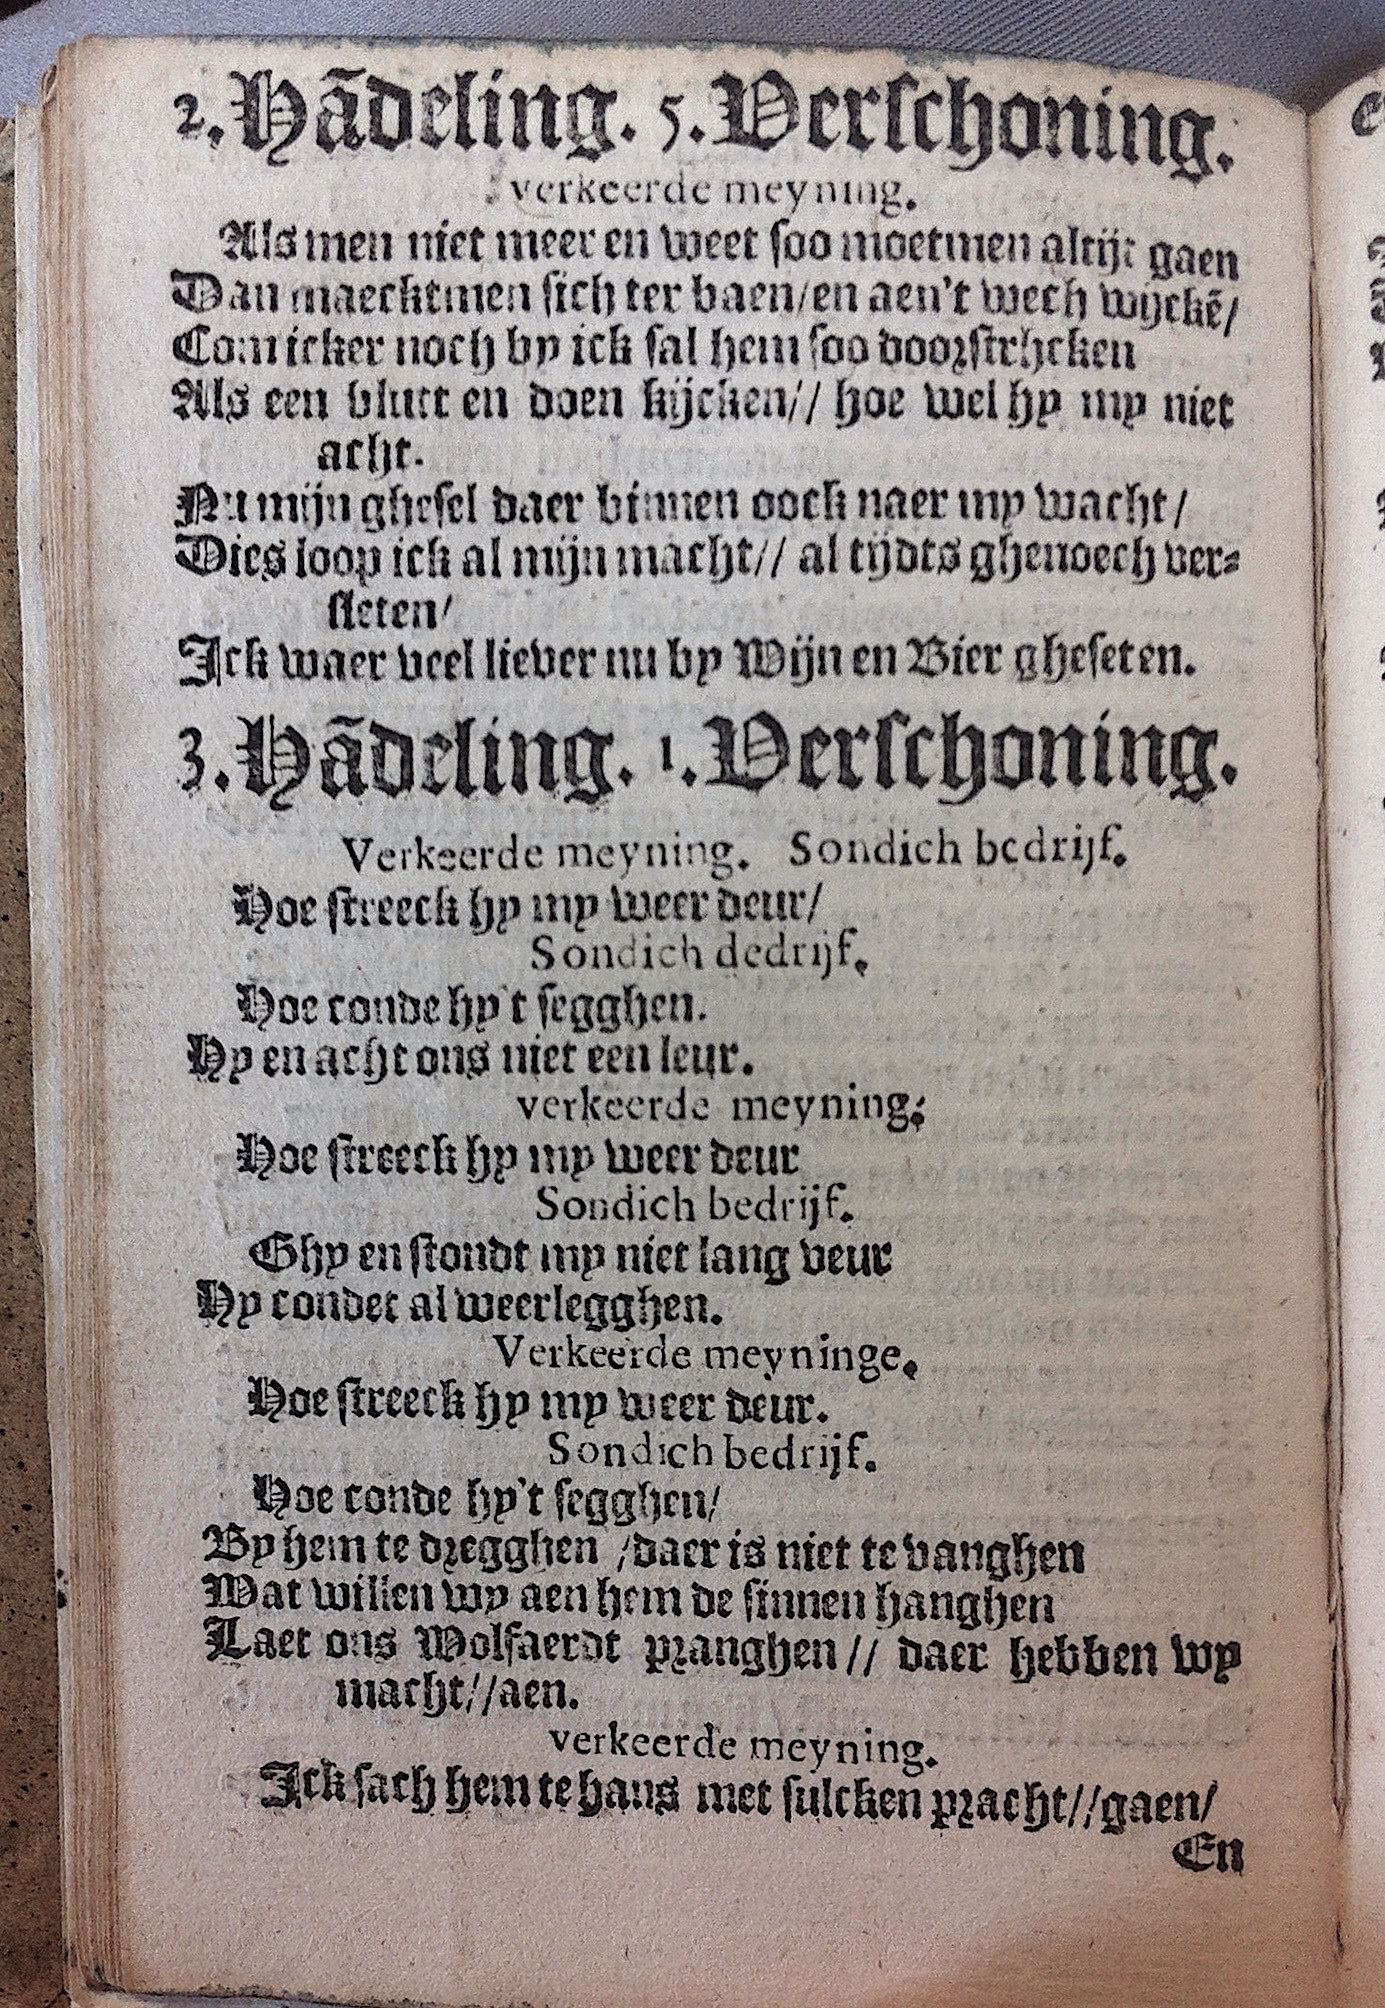 2. Hãdeling. 5. Verschoning.
verkeerde meyning.
Als men niet meer en weet soo moetmen altijt gaen
Dan maecktmen sich ter baen/en aen't wech wijckẽ/
Com icker noch by ick sal hem soo doorstrijcken
Als een blutt en doen kijcken// hoe wel hy my niet
acht.
Nu mijn ghesel daer binnen oock naer my wacht/
Dies loop ick al mijn macht// al tijdts ghenoech ver-
sleten/
Ick waer veel liever nu by Wijn en Bier gheseten.
3. Hãdeling. 1. Verschoning.
Verkeerde meyning. Sondich bedrijf.
Hoe streeck hy my weer deur/
Sondich dedrijf.
Hoe conde hy't segghen.
Hy en acht ons niet een leur.
verkeerde meyning:
Hoe streeck hy my weer deur
Sondich bedrijf.
Ghy en stondt my niet lang veur
Hy condet al weerlegghen.
Verkeerde meyninge.
Hoe streeck hy my weer deur.
Sondich bedrijf.
Hoe conde hy't segghen/
By hem te dregghen /daer is niet te vanghen
Wat willen wy aen hem de sinnen hanghen
Laet ons Wolfaerdt pranghen// daer hebben wy
macht//aen.
verkeerde meyning.
Ick sach hem te haus met sulcken pracht//gaen/
En